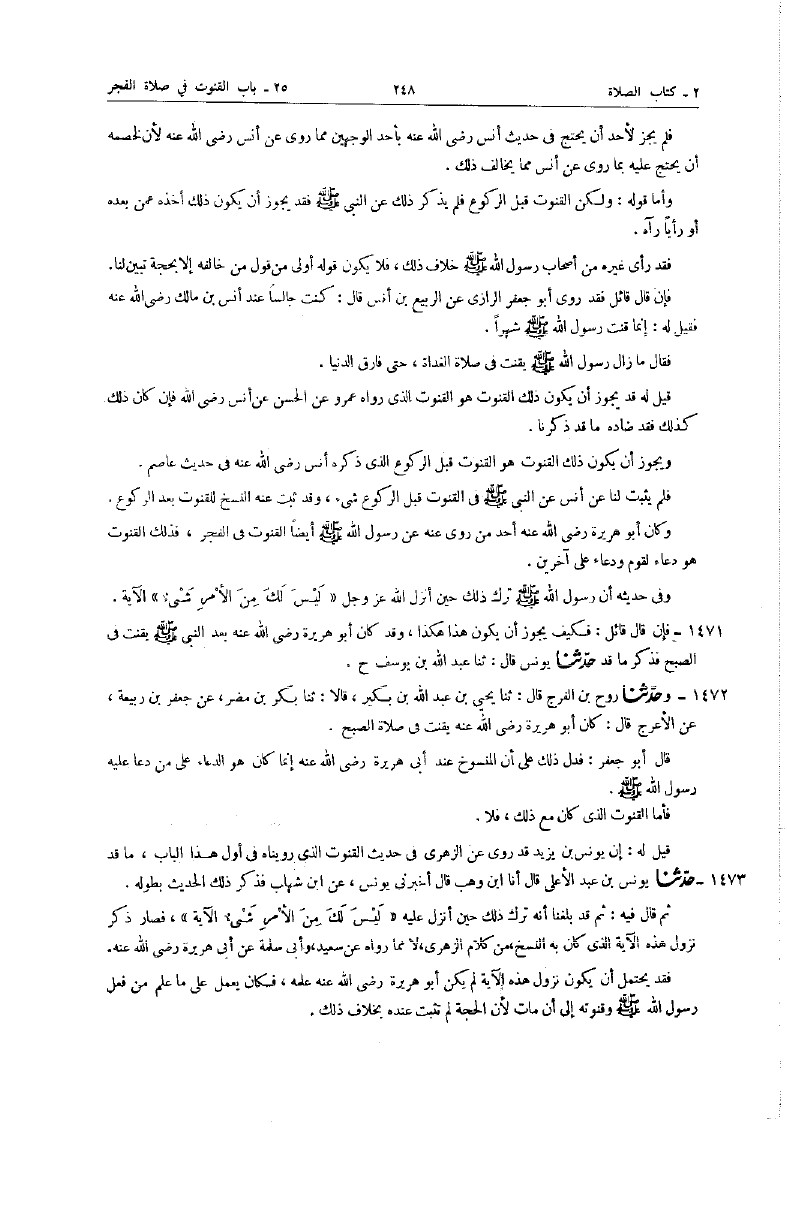 ٢ ـ كتاب الصلاة ٢٤٨ ٢٥ ـ باب القنوت في صلاة الفجر
فلم يجز لأحد أن يحتج فى حديث أنس رضى الله عنه بأحد الوجهين مما روى عن أنس رضى الله عنه لأن لخصمه
أن يحتج عليه بما روى عن أنس مما يخالف ذلك .
وأما قوله : ولكن القنوت قبل الركوع فلم يذكر ذلك عن النبى ﷺ فقد يجوز أن يكون ذلك أخذه عمن بعده
أو رأياً رآه .
فقد رأى غيره من أصحاب رسول الله ﷺ خلاف ذلك ، فلا يكون قوله أولى من قول من خالفه إلا بحجة تبين لنا.
فإن قال قائل فقد روى أبو جعفر الرازى عن الربيع بن أنس قال : كنت جالساً عند أنس بن مالك رضى الله عنه
فقيل له : إنما قنت رسول الله ﷺ شهراً .
فقال ما زال رسول الله ﷺ يقنت فى صلاة الغداة ، حتى فارق الدنيا .
قيل له قد يجوز أن يكون ذلك القنوت هو القنوت الذى رواه عمرو عن الحسن عن أنس رضى الله فإن كان ذلك
كذلك فقد ضاده ما قد ذكرنا .
ويجوز أن يكون ذلك القنوت هو القنوت قبل الركوع الذى ذكره أنس رضى الله عنه فى حديث عاصم .
فلم يثبت لنا عن أنس عن النبى ﷺ فى القنوت قبل الركوع شىء ، وقد ثبت عنه النسخ للقنوت بعد الركوع .
وكان أبو هريرة رضى الله عنه أحد من روى عنه عن رسول الله ﷺ أيضاً القنوت فى الفجر ، فذلك القنوت
هو دعاء لقوم ودعاء على آخرين .
وفى حديثه أن رسول الله ﷺ ترك ذلك حين أنزل الله عز وجل « لَيْسَ لَكَ مِنَ الْأَمْرِ شَىْءٌ » الآية .
١٤٧١ ـ فإن قال قائل : فكيف يجوز أن يكون هذا هكذا ، وقد كان أبو هريرة رضى الله عنه بعد النبى ﷺ يقنت فى
الصبح فذكر ما قد حدّثنا يونس قال : ثنا عبد الله بن يوسف ح .
١٤٧٢ ـ وحدّثنا روح بن الفرج قال : ثنا يحيي بن عبد الله بن بكير ، قالا : ثنا بكر بن مضر، عن جعفر بن ربيعة ،
عن الأعرج قال : كان أبو هريرة رضى الله عنه يقنت فى صلاة الصبح .
قال أبو جعفر : فدل ذلك على أن المنسوخ عند أبى هريرة رضى الله عنه إنما كان هو الدعاء على من دعا عليه
رسول الله ﷺ .
فأما القنوت الذى كان مع ذلك ، فلا .
قيل له : إن يونس بن يزيد قد روى عن الزهرى فى حديث القنوت الذى رويناه فى أول هذا الباب ، ما قد
١٤٧٣ ـ حدّثنا يونس بن عبد الأعلى قال أنا ابن وهب قال أخبرنى يونس ، عن ابن شهاب فذكر ذلك الحديث بطوله .
ثم قال فيه : ثم قد بلغنا أنه ترك ذلك حين أنزل عليه « لَيْسَ لَكَ مِنَ الْأَمْرِ شَىْءٌ الآية » ، فصار ذكر
نزول هذه الآية الذى كان به النسخ،من كلام الزهرى،لا مما رواه عن سعيد،وأبى سلمة عن أبى هريرة رضى الله عنه.
فقد يحتمل أن يكون نزول هذه الآية لم يكن أبو هريرة رضى الله عنه علمه ، فكان يعمل على ما علم من فعل
رسول الله ﷺ وقنوته إلى أن مات لأن الحجة لم تثبت عنده بخلاف ذلك .